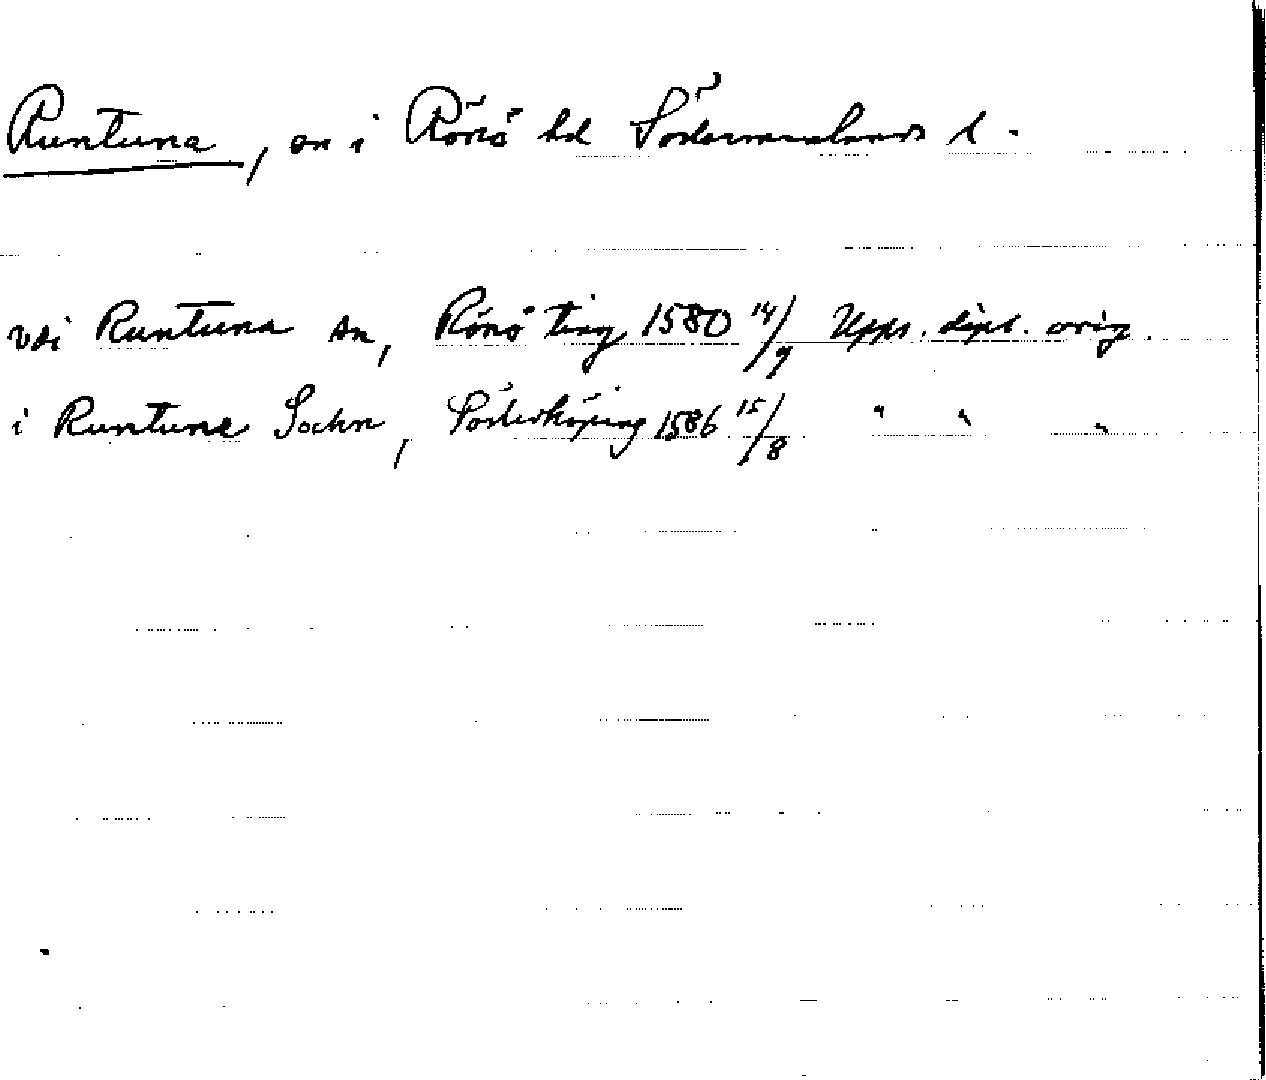 Runtuna, sn i Rönö hd Södermanlands l.
vdi Runtuna sn, Rönö ting 1580 14/9 Upps. dipl. orig.
i Runtuna Sochn, Söderköping 1586 15/8 " " "